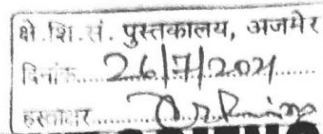 क्षे.शि.सं. पुस्तकालय, अजमेर
दिनांक.....26/7/2021.....
हस्ताक्षर.....